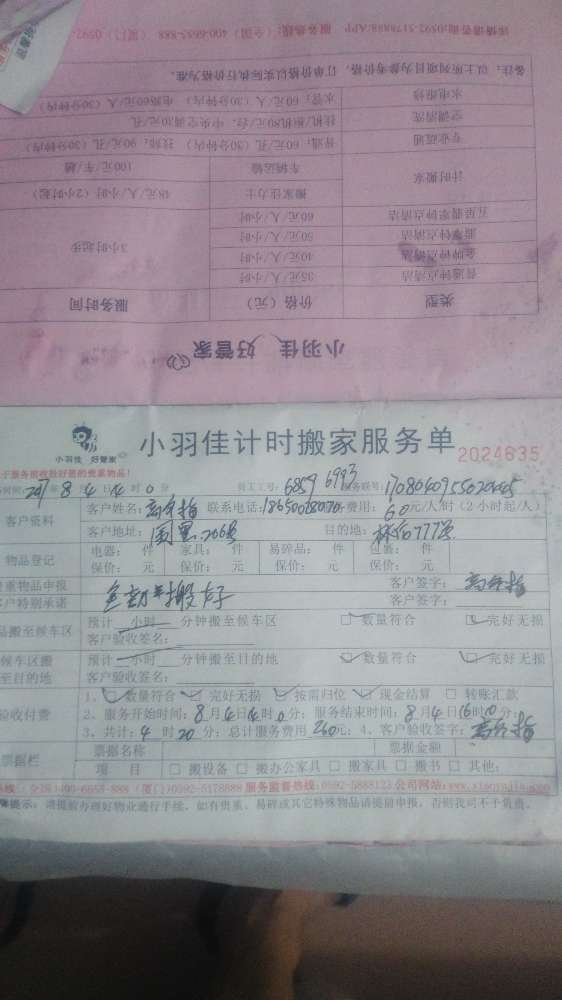 小羽佳 好管家
类型 价格(元) 服务时间
普通钟点清洁 35元/人/小时 3小时起步
金牌钟点清洁 40元/人/小时
翡翠钟点清洁 50元/人/小时
五星翡翠钟点清洁 60元/人/小时
计时搬家 搬家壮力士 48元/人/小时(2小时起)
车辆运输 100元/车/趟
专业疏通 普通:60元/孔(30分钟内) 技师:90元/孔(30分钟内)
空调清洗 挂机/柜机80元/台,中央空调30元/孔
水电维修 水管:60元/人(30分钟内) 电路60元/人(30分钟内)
备注:以上所列项目为参考价格,订单价格以实际执行价格为准。
详情请咨询:0592-5178888/APP 服务热线:(全国)400-6655-888 (厦门)0592-
小羽佳 好管家
小羽佳计时搬家服务单
2024635
于服务前收拾好您的贵重物品!
时间: 8月4日14时0分 员工工号: 6859 6993 服务联号:
客户资料 客户姓名: 联系电话: 费用: 60元/人/时(2小时起/人)
客户地址: 206号 目的地: 777号
物品登记 电器: 件 家具: 件 易碎品: 件 包装: 件
保价: 元 保价: 元 保价: 元 保价: 元
贵重物品申报 客户签字:
客户特别承诺 客户签字:
品搬至候车区 预计 小时 分钟搬至候车区 数量符合 完好无损
客户验收签名:
候车区搬至目的地 预计 小时 分钟搬至目的地 数量符合 完好无损
客户验收签名:
验收付费 1、数量符合 完好无损 按需归位 现金结算 转账汇款
2、服务开始时间: 8月4日 时0分; 服务结束时间: 8月4日 分;
3、共计: 4时20分; 总计服务费用260元; 4、客户验收签字:
票据栏 票据名称 票据金额
项目 搬设备 搬办公家具 搬家具 搬书 其他:
热线:全国400-6655-888 (厦门)0592-5178888 服务监督热线:0592-5888123 公司网站:www.xiaoyujia.com
提示:请提前办理好物业通行手续。如有贵重、易碎或其它特殊物品请提前申报,否则我司不予负责。